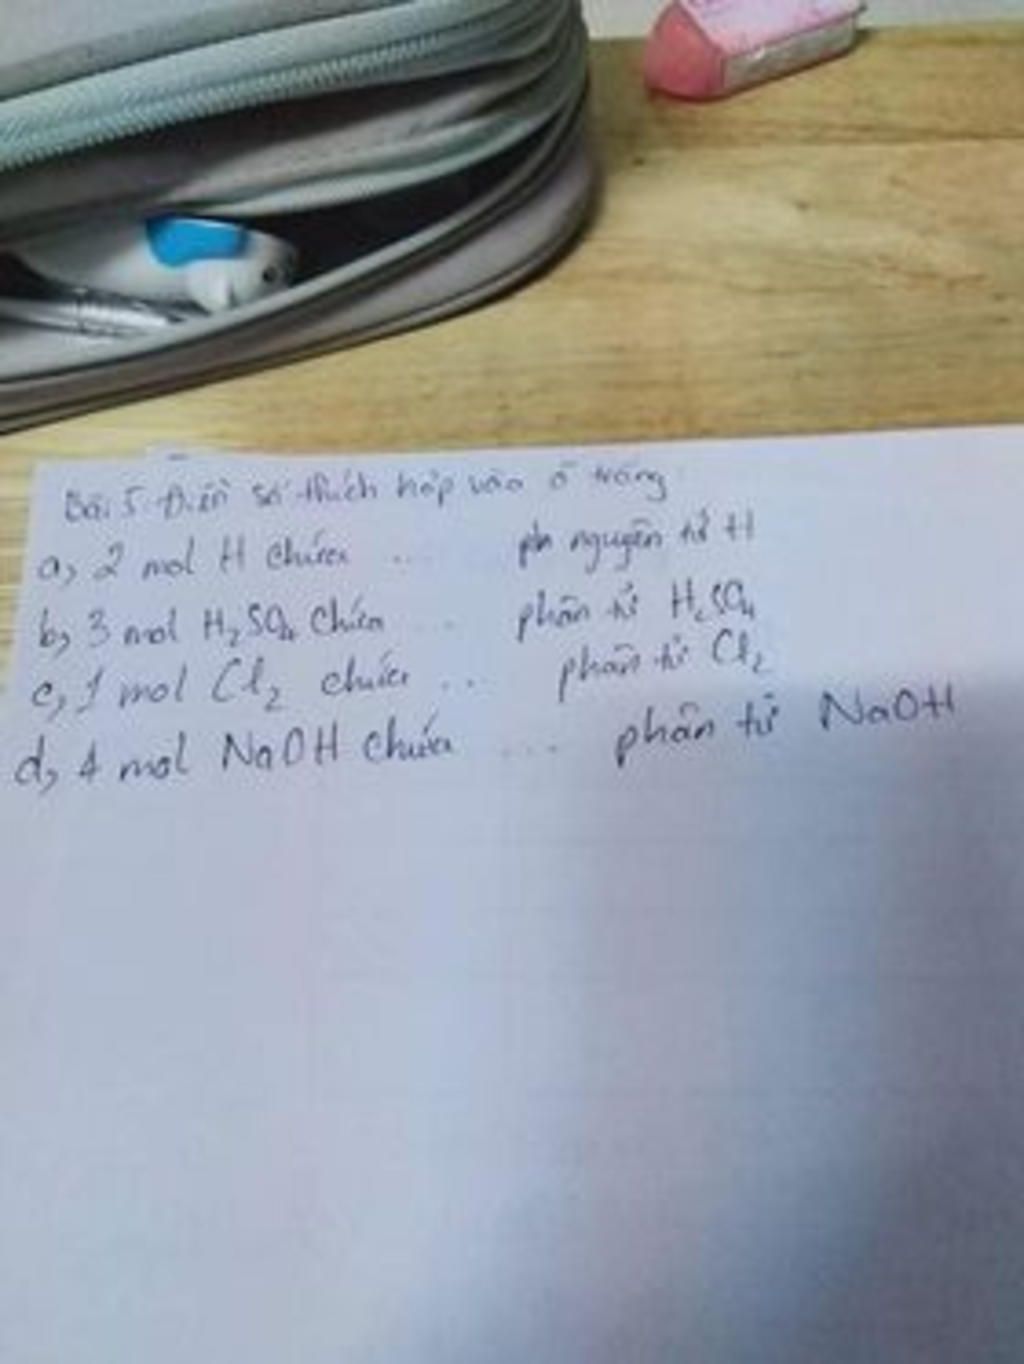 Bài 5. Điền số thích hợp vào ô trống
a, 2 mol H chứa ... ph nguyên tử H
b, 3 mol H₂SO₄ chứa ... phân tử H₂SO₄
c, 1 mol Cl₂ chứa ... phân tử Cl₂
d, 4 mol NaOH chứa ... phân tử NaOH